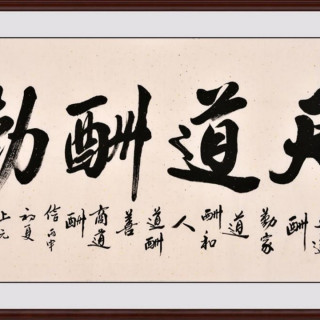 天道酬勤
道酬勤家道酬和人道酬善商道酬信丙申初夏上元